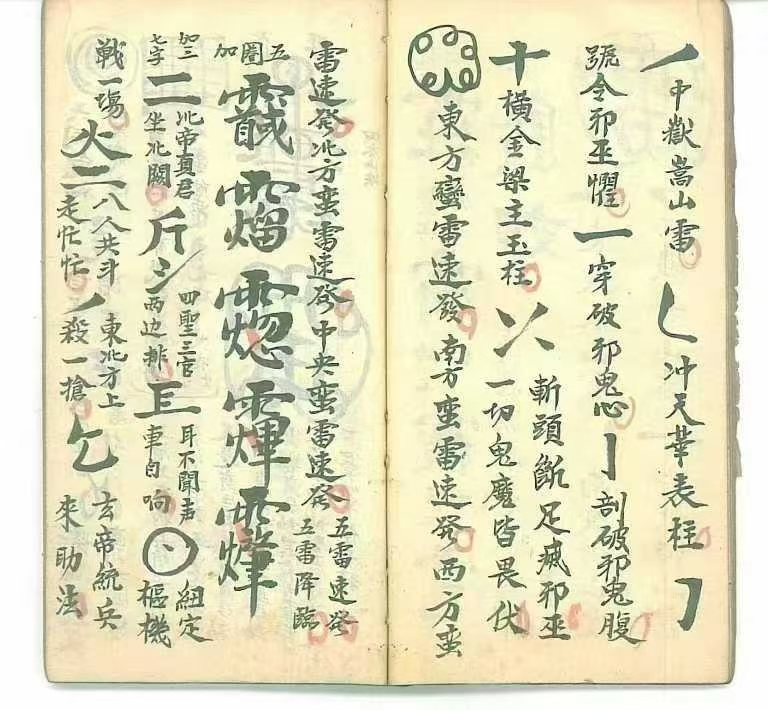 丿中嶽嵩山雷乚冲天華表柱𠃌
號令邪巫懼一穿破邪鬼心亅剖破邪鬼腹
十橫金梁主玉柱
斬頭斷足滅邪巫
一切鬼魔皆畏伏
東方蛮雷速發南方蛮雷速發西方蛮
雷速發北方蛮雷速發中央蛮雷速發
五雷速發
五雷降臨
五圈加
加三
七字
二
北帝真君
坐北闕
斤
四聖三官
西边排
耳不聞声
車自响
紐定
樞機
戦一場
火二
八人共斗
走忙忙
丿
東北方上
殺一搶
玄帝統兵
來助法